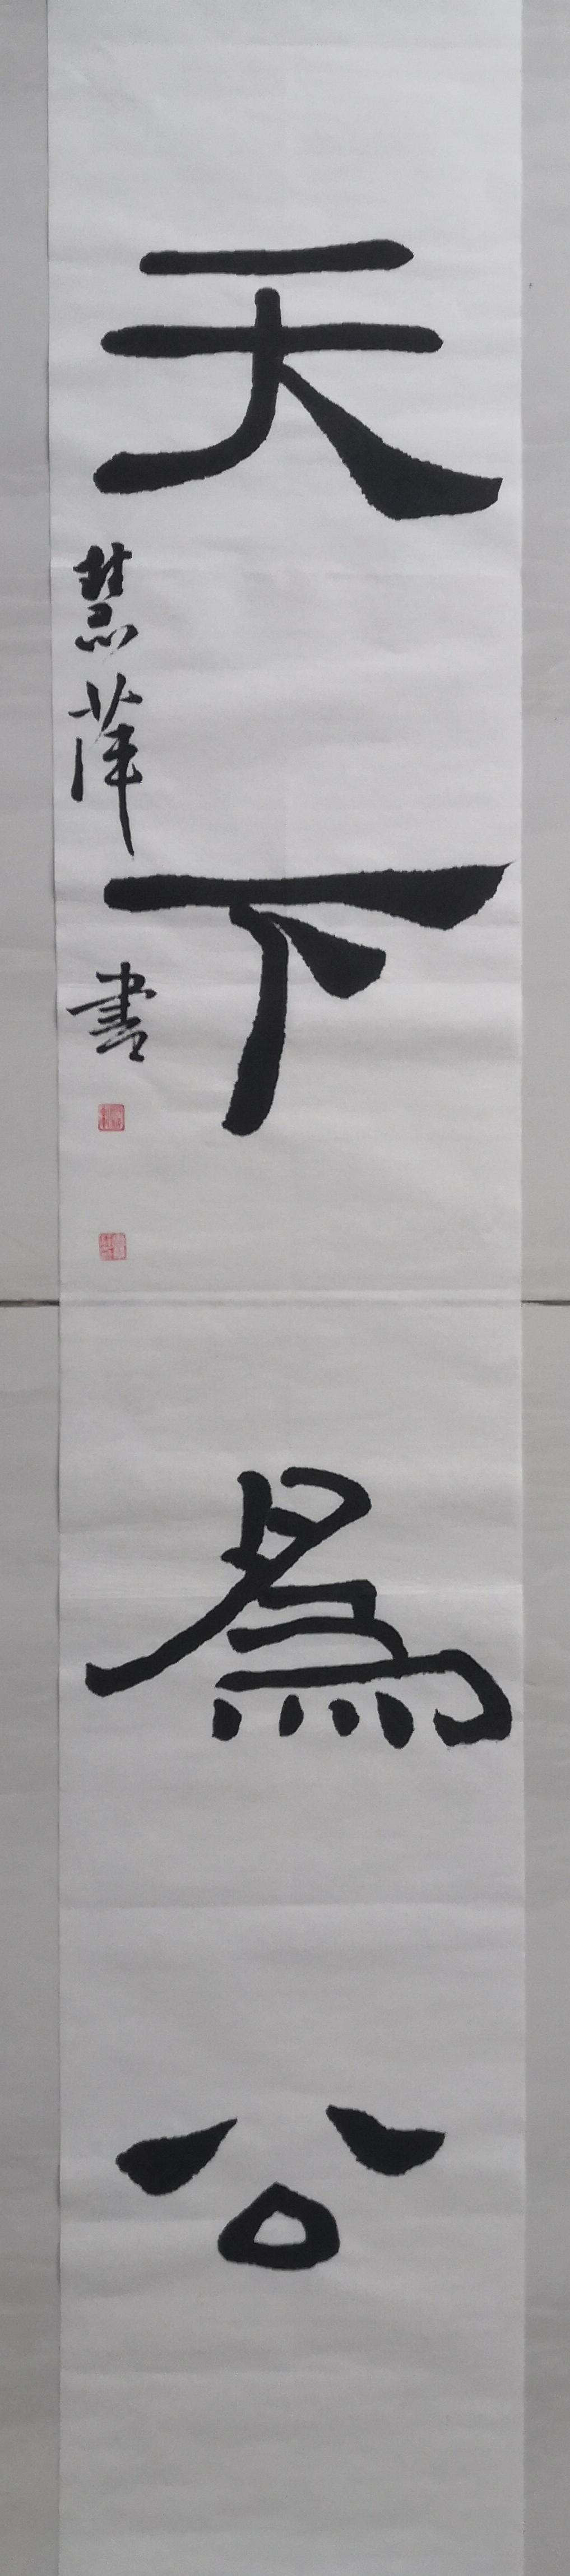 天下為公
慧萍書